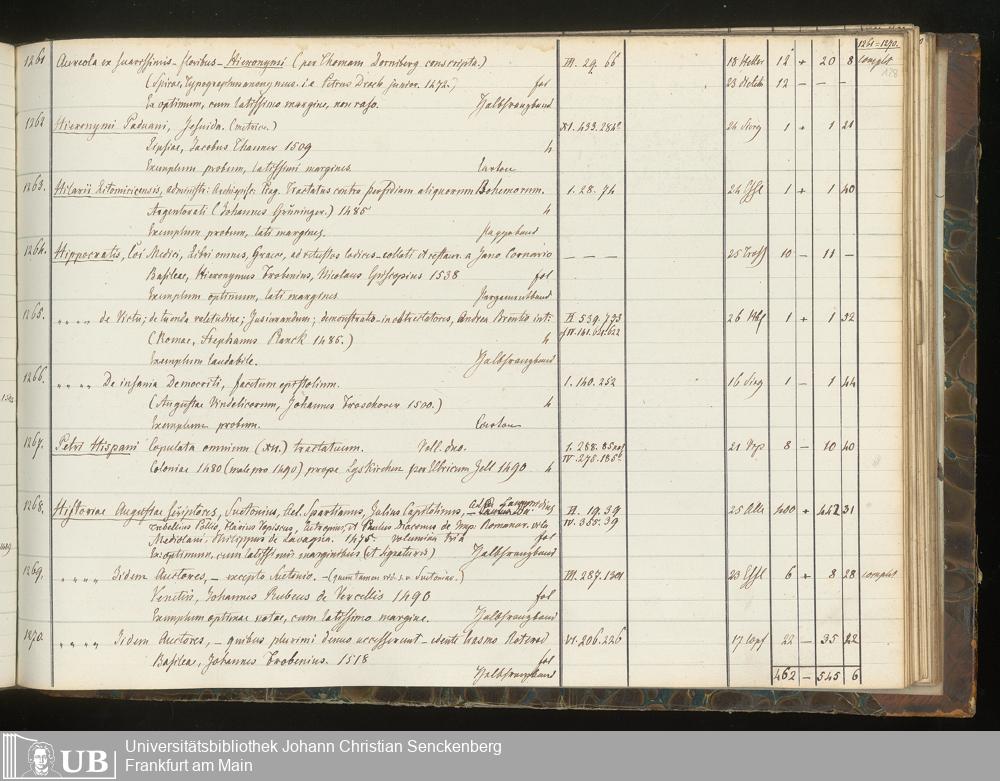 1261=1270.
1261 Aureola ex suavissimis floribus Hieronymi (per Thomam Dorniberg conscripta.) III. 29. 66 18 12 + 20 8 complt
(Spirae, Typographus anonymus. i.e. Petrus Drach junior. 1472.) fol 23 12 — — —
Ex optimum, cum latissimo margine, non caso. Halbfranzband
1262 Hieronymi Paduani, Jesuida. (metrice.) XI. 433. 284 24 1 + 1 21
Lipsiae, Jacobus Thanner 1509 4
Exemplum probum, latissimi margines. Carton
1263. Hilarii Litomicicensis, administr: Archiepisc: Prag. Tractatus contra perfidiam aliquorum Bohemorum. 1. 28. 74 24 1 + 1 40
Argentorati (Johannes Grüninger.) 1485 4
Exemplum probum, lati margines. Pappeband
1264. Hippocratis, Coi Medici, Libri omnes, Graece, ad vetustos codices collati et restaur. a Jano Cornario — — — 25 10 — 11 —
Basileae, Hieronymus Frobenius, Nicolaus Episcopius 1538 fol
Exemplum optimum, lati margines. Pergamentband
1265. " " " " de Victu; de tuenda valetudine; Jusiurandum; demonstratio in obtrectatores, Andrea Brentio int: II. 539. 793 26 1 + 1 32
(Romae, Stephanus Planck 1485.) 4
Exemplum laudabile. Halbfranzband
1266. " " " " De insania Democriti, facetum epistolium. 1. 140. 252 16 1 — 1 44
(Augustae Vindelicorum, Johannes Froschover 1500.) 4
Exemplum probum. Carton
1267. Petri Hispani Copulata omnium tractatuum. Voll. duo. I. 288. 85 21 8 — 10 40
IV. 275. 185
Coloniae 1480 (male pro 1490) prope Lyskirchen per Ulricum Zell 1490 4
1268. Historiae Augustae Scriptores, Suetonius, Ael. Spartianus, Julius Capitolinus, Ael. Lampridius II. 19. 39 25 400 + 442 31
Trebellius Pollio, Flavius Vopiscus, Eutropius, et Paulus Diaconus de Imp. Romanor. vita IV. 355. 39
Mediolani, Philippus de Lavagna. 1475. volumina tria fol
Ex: optimum, cum latissimis marginibus (et signaturis) Halbfranzband
1269. " " " " Iidem Auctores, — excepto Suetonio. — (quem tamen vid. s. v. Suetonius.) III. 287. 1301 23 6 + 8 28 complet
Venetiis, Johannes Rubeus de Vercellis 1490 fol
Exemplum optimae notae, cum latissimo margine. Halbfranzband
1270. " " " " Iidem Auctores, — quibus plurimi denuo accesserunt — edente Erasmo Roterod VI. 206. 226 17 22 — 35 22
Basileae, Johannes Frobenius. 1518 fol
Halbfranzband 462 — 545 6
UB
Universitätsbibliothek Johann Christian Senckenberg
Frankfurt am Main